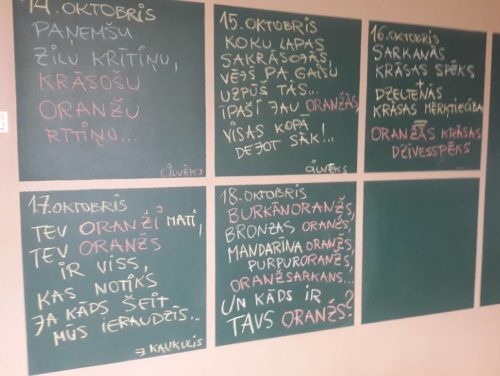 14.OKTOBRIS
PAŅEMŠU
ZIĻU KRĪTIŅU,
KRĀSOŠU
ORANŽU
RĪTIŅU...
CILVĒKS
15.OKTOBRIS
KOKU LAPAS
SAKRĀSOJAS,
VĒJŠ PA GAISU
UZPŪŠ TĀS...
ĪPAŠI JAU ORANŽĀS,
VISAS KOPĀ
DEJOT SĀK!...
CILVĒKS
16.OKTOBRIS
SARKANĀS
KRĀSAS SPĒKS
+
DZELTENĀS
KRĀSAS MĒRĶTIECĪBA
=
ORANŽĀS KRĀSAS
DZĪVESSPĒKS
17.OKTOBRIS
TEV ORANŽI MATI,
TEV ORANŽS
IR VISS,
KAS NOTIKS
JA KĀDS ŠEIT
MŪS IERAUDZĪS...
J KAUKULIS
18.OKTOBRIS
BURKĀNORANŽS,
BRONZAS ORANŽS,
MANDARĪNA ORANŽS,
PURPURORANŽS,
ORANŽSARKANS...
UN KĀDS IR
TAVS ORANŽS?